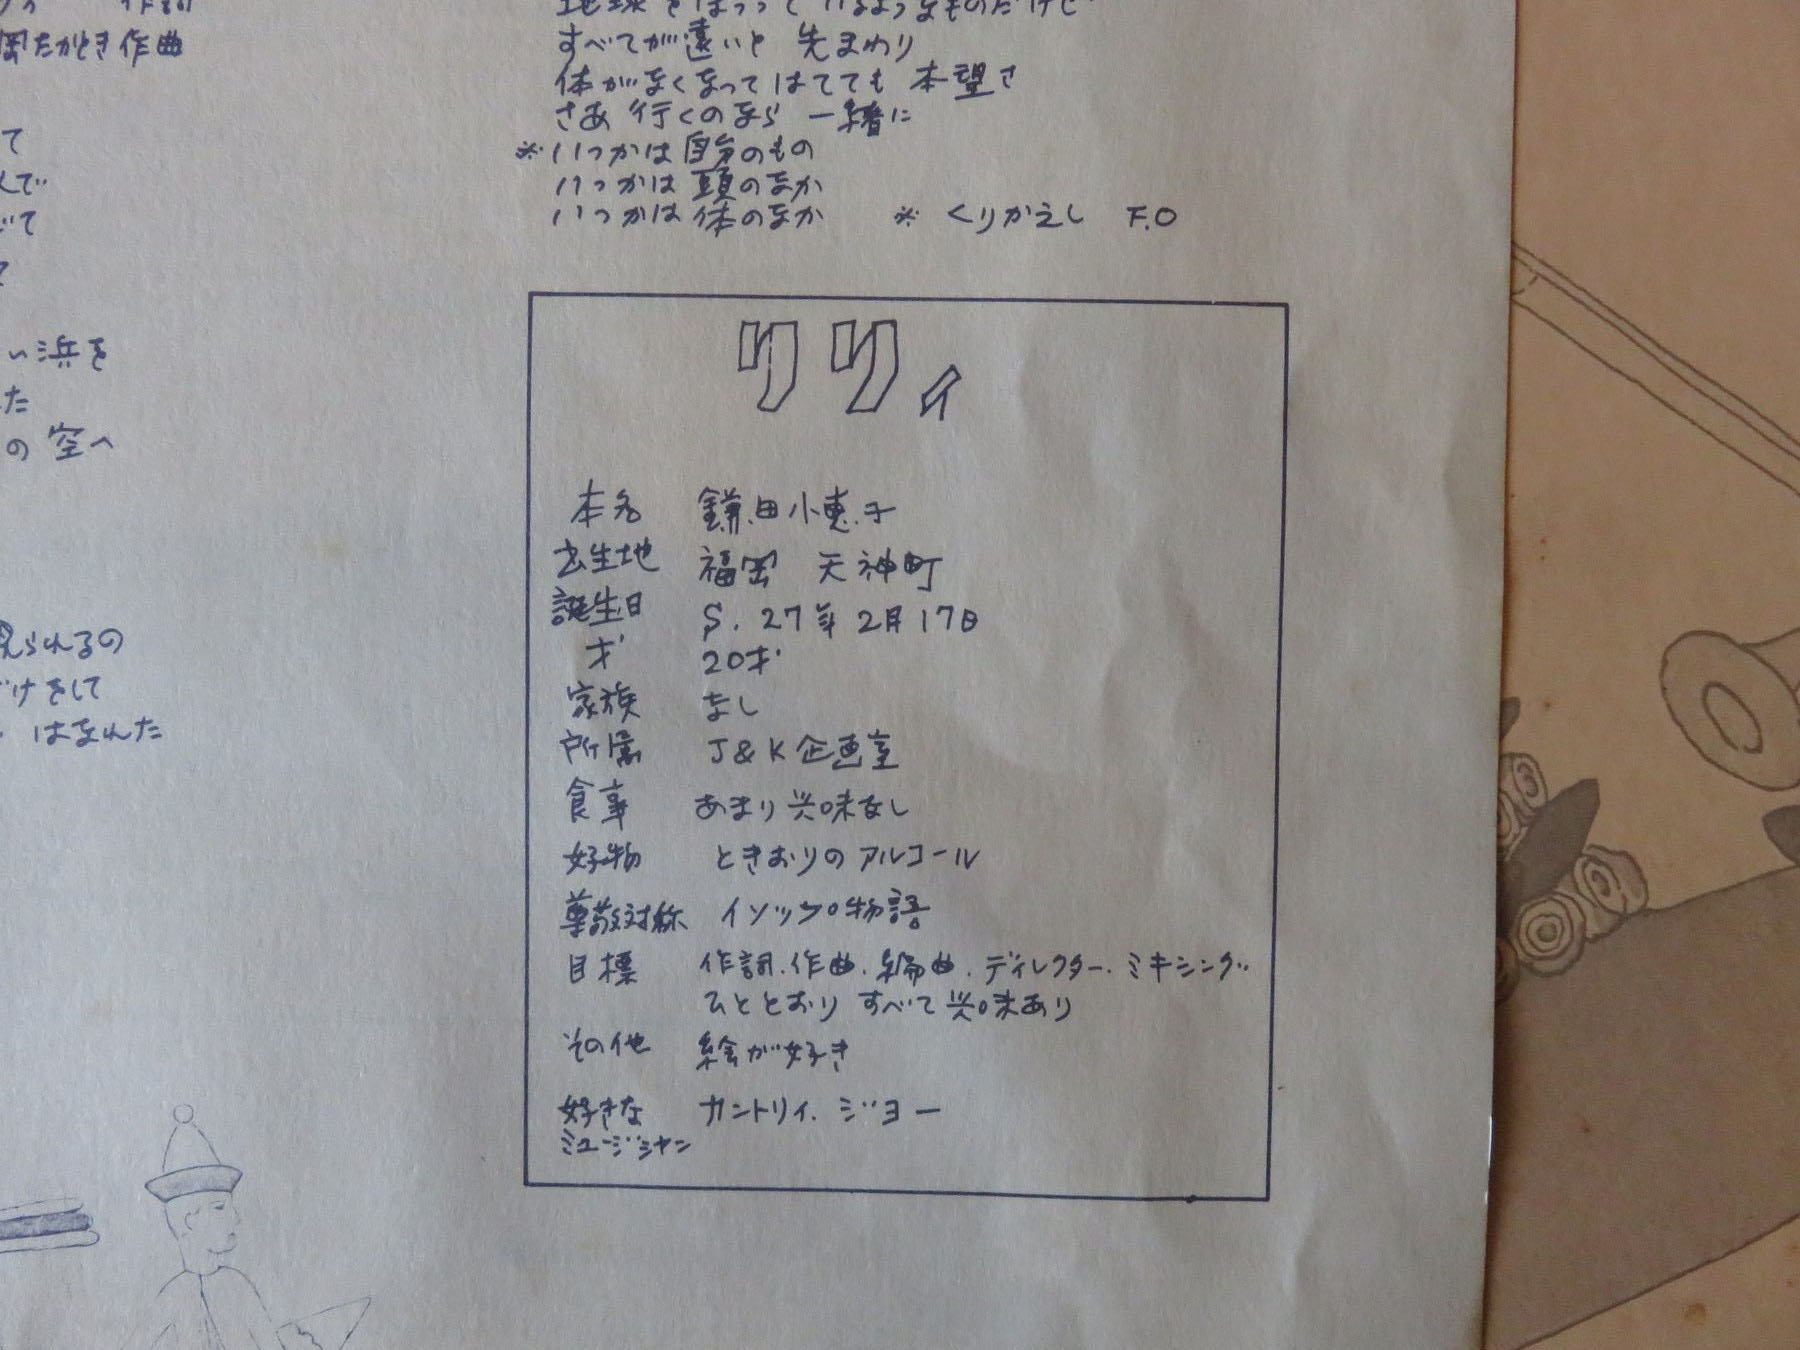 岡たかとき作曲
て
んで
て
い浜を
た
の空へ
見られるの
けをして
はなれた
すべてが遠いと 先まわり
体がなくなってはてても 本望さ
さあ 行くのなら 一緒に
※いつかは 自分のもの
いつかは 頭のなか
いつかは 体のなか ※ くりかえし F.O
リリィ
本名 鎌田小恵子
出生地 福岡 天神町
誕生日 S.27年2月17日
才 20才
家族 なし
所属 J&K企画室
食事 あまり興味なし
好物 ときおりのアルコール
尊敬対称 イソップ物語
目標 作詞.作曲.編曲.ディレクター.ミキシング
ひととおり すべて興味あり
その他 絵が好き
好きな カントリィ.ジョー
ミュージシャン